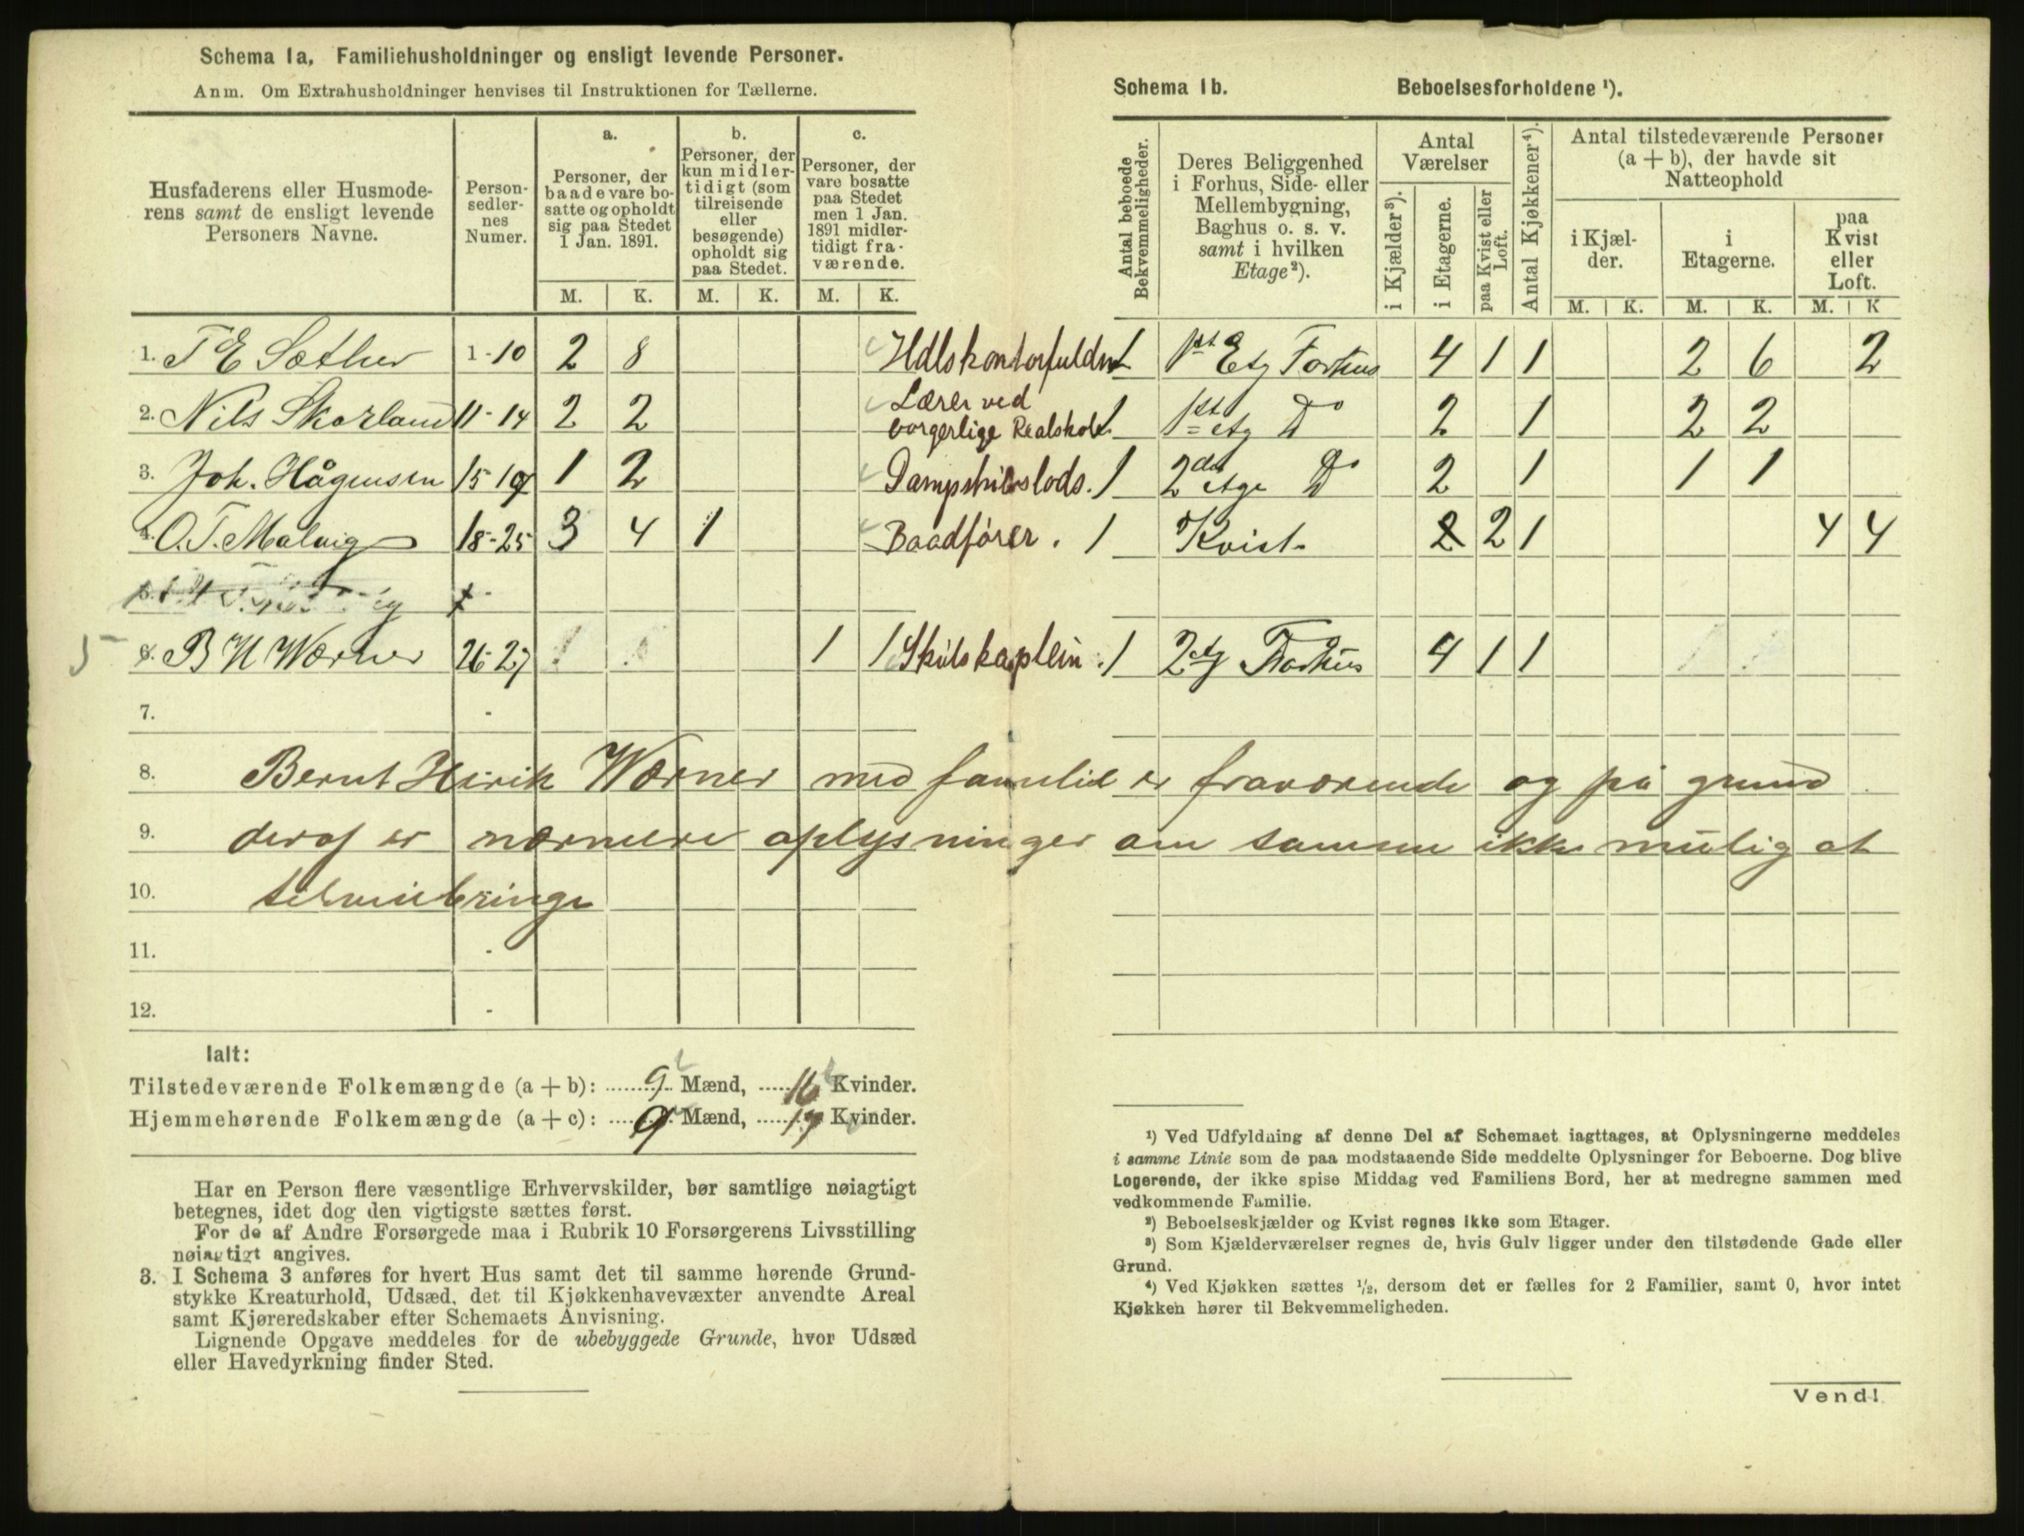 Schema 1a, Familiehusholdninger og ensligt levende Personer.
Anm. Om Extrahusholdninger henvises til Instruktionen for Tællerne.
Husfaderens eller Husmode-
rens samt de ensligt levende
Personers Navne.
Person-
sedler-
nes
Numer.
a.
Personer, der
baade vare bo-
satte og opholdt
sig paa Stedet
1 Jan. 1891.
b.
Personer, der
kun midler-
tidigt (som
tilreisende
eller
besøgende)
opholdt sig
paa Stedet.
c.
Personer, der
vare bosatte
paa Stedet
men 1 Jan.
1891 midler-
tidigt fra-
værende.
M. K. M. K. M. K.
1. T E Sæther 1-10 2 8 Hdlskontorfuldm
2. Nils Skorland 11-14 2 2 Lærer ved
borgerlige Realskole
3. Joh. Hågensen 15-17 1 2 Dampskibslods.
4. O.T. Malvig 18-25 3 4 1 Baadfører.
5.
5 6. B H Wærner 26-27 1 1 Skibskaptein
7. -
8. Bernt Hinrik Wærner med familie er fraværende og på grund
9. deraf er nærmere oplysninger om samme ikke mulig at
10. tilveiebringe
11. -
12. -
Ialt:
Tilstedeværende Folkemængde (a + b): 9 Mænd, 16 Kvinder.
Hjemmehørende Folkemængde (a + c): 9 Mænd, 17 Kvinder.
Har en Person flere væsentlige Erhvervskilder, bør samtlige nøiagtigt
betegnes, idet dog den vigtigste sættes først.
For de af Andre Forsørgede maa i Rubrik 10 Forsørgerens Livsstilling
nøiagtigt angives.
3. I Schema 3 anføres for hvert Hus samt det til samme hørende Grund-
stykke Kreaturhold, Udsæd, det til Kjøkkenhavevæxter anvendte Areal
samt Kjøreredskaber efter Schemaets Anvisning.
Lignende Opgave meddeles for de ubebyggede Grunde, hvor Udsæd
eller Havedyrkning finder Sted.
Schema 1b. Beboelsesforholdene ¹).
Antal beboede
Bekvemmeligheder.
Deres Beliggenhed
i Forhus, Side- eller
Mellembygning,
Baghus o. s. v.
samt i hvilken
Etage²).
Antal
Værelser
i Kjælder³).
i Etagerne.
paa Kvist eller
Loft.
Antal Kjøkkener⁴).
Antal tilstedeværende Personer
(a + b), der havde sit
Natteophold
i Kjæl-
der.
i
Etagerne.
paa
Kvist
eller
Loft.
M. K. M. K. M. K
1 1st Etg Forhus 4 1 1 2 6 2
1 1st etg Do 2 1 2 2
1 2den etge Do 2 1 1 1
1 Kvist 2 2 1 4 4
1 2 etg Forhus 4 1 1
¹) Ved Udfyldning af denne Del af Schemaet iagttages, at Oplysningerne meddeles
i samme Linie som de paa modstaaende Side meddelte Oplysninger for Beboerne. Dog blive
Logerende, der ikke spise Middag ved Familiens Bord, her at medregne sammen med
vedkommende Familie.
²) Beboelseskjælder og Kvist regnes ikke som Etager.
³) Som Kjælderværelser regnes de, hvis Gulv ligger under den tilstødende Gade eller
Grund.
⁴) Ved Kjøkken sættes ½, dersom det er fælles for 2 Familier, samt 0, hvor intet
Kjøkken hører til Bekvemmeligheden.
Vend!